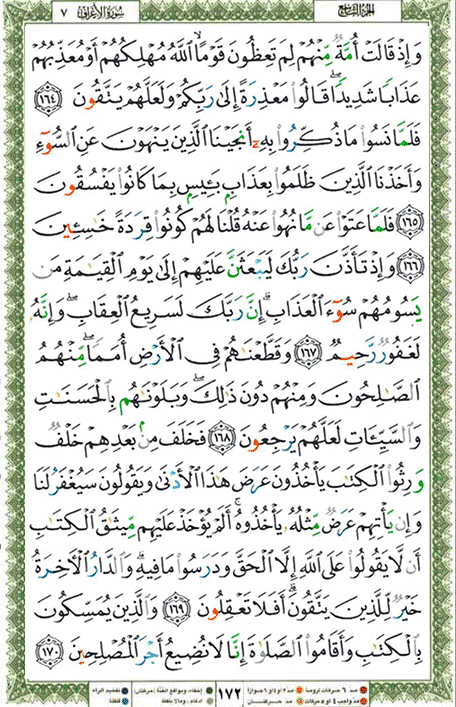 الجزء التاسع سورة الأعراف ٧
وَإِذْ قَالَتْ أُمَّةٌ مِّنْهُمْ لِمَ تَعِظُونَ قَوْمًا ٱللَّهُ مُهْلِكُهُمْ أَوْ مُعَذِّبُهُمْ
عَذَابًا شَدِيدًا ۖ قَالُوا۟ مَعْذِرَةً إِلَىٰ رَبِّكُمْ وَلَعَلَّهُمْ يَتَّقُونَ ١٦٤
فَلَمَّا نَسُوا۟ مَا ذُكِّرُوا۟ بِهِۦٓ أَنجَيْنَا ٱلَّذِينَ يَنْهَوْنَ عَنِ ٱلسُّوٓءِ
وَأَخَذْنَا ٱلَّذِينَ ظَلَمُوا۟ بِعَذَابٍۭ بَـِٔيسٍۭ بِمَا كَانُوا۟ يَفْسُقُونَ
١٦٥ فَلَمَّا عَتَوْا۟ عَن مَّا نُهُوا۟ عَنْهُ قُلْنَا لَهُمْ كُونُوا۟ قِرَدَةً خَـٰسِـِٔينَ
١٦٦ وَإِذْ تَأَذَّنَ رَبُّكَ لَيَبْعَثَنَّ عَلَيْهِمْ إِلَىٰ يَوْمِ ٱلْقِيَـٰمَةِ مَن
يَسُومُهُمْ سُوٓءَ ٱلْعَذَابِ ۗ إِنَّ رَبَّكَ لَسَرِيعُ ٱلْعِقَابِ ۖ وَإِنَّهُۥ
لَغَفُورٌ رَّحِيمٌ ١٦٧ وَقَطَّعْنَـٰهُمْ فِى ٱلْأَرْضِ أُمَمًا ۖ مِّنْهُمُ
ٱلصَّـٰلِحُونَ وَمِنْهُمْ دُونَ ذَٰلِكَ ۖ وَبَلَوْنَـٰهُم بِٱلْحَسَنَـٰتِ
وَٱلسَّيِّـَٔاتِ لَعَلَّهُمْ يَرْجِعُونَ ١٦٨ فَخَلَفَ مِنۢ بَعْدِهِمْ خَلْفٌ
وَرِثُوا۟ ٱلْكِتَـٰبَ يَأْخُذُونَ عَرَضَ هَـٰذَا ٱلْأَدْنَىٰ وَيَقُولُونَ سَيُغْفَرُ لَنَا
وَإِن يَأْتِهِمْ عَرَضٌ مِّثْلُهُۥ يَأْخُذُوهُ ۚ أَلَمْ يُؤْخَذْ عَلَيْهِم مِّيثَـٰقُ ٱلْكِتَـٰبِ
أَن لَّا يَقُولُوا۟ عَلَى ٱللَّهِ إِلَّا ٱلْحَقَّ وَدَرَسُوا۟ مَا فِيهِ ۗ وَٱلدَّارُ ٱلْـَٔاخِرَةُ
خَيْرٌ لِّلَّذِينَ يَتَّقُونَ ۗ أَفَلَا تَعْقِلُونَ ١٦٩ وَٱلَّذِينَ يُمَسِّكُونَ
بِٱلْكِتَـٰبِ وَأَقَامُوا۟ ٱلصَّلَوٰةَ إِنَّا لَا نُضِيعُ أَجْرَ ٱلْمُصْلِحِينَ ١٧٠
مد ٦ حركات لزوما مد ٢ أو ٤ أو ٦ جوازا ١٧٢ إخفاء، ومواقع الغنة (حركتان) تفخيم الراء
مد واجب ٤ أو ٥ حركات مد حركتان إدغام، وما لا يلفظ قلقلة